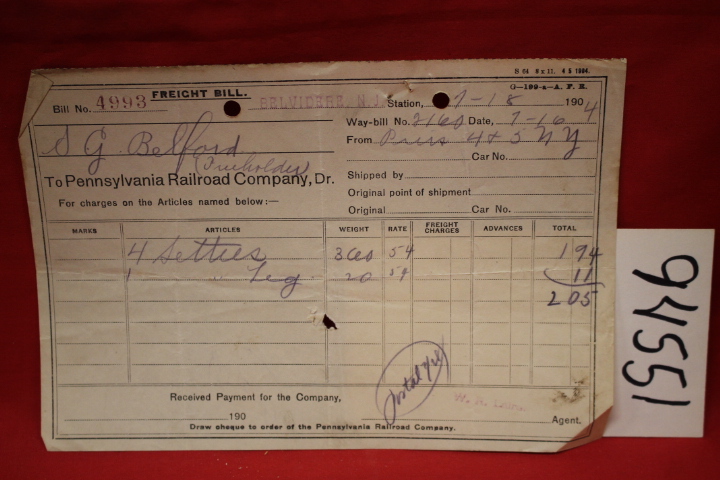 H 64 8 x 11. 4 5 1904.
G—199-a—A. P. R.
FREIGHT BILL.
Bill No. 4993 BELVIDERE, N.J. Station, 7-18 1904
Way-bill No. 2160 Date, 7-16 4
S G Belford
Freeholder
From Piers 4 & 5 N Y
Car No.
To Pennsylvania Railroad Company, Dr.
Shipped by
For charges on the Articles named below:—
Original point of shipment
Original Car No.
MARKS ARTICLES WEIGHT RATE FREIGHT CHARGES ADVANCES TOTAL
4 Settees 360 54 194
1 " Leg 20 54 11
205
Received Payment for the Company,
190
W. R. Agent.
Draw cheque to order of the Pennsylvania Railroad Company.
94551